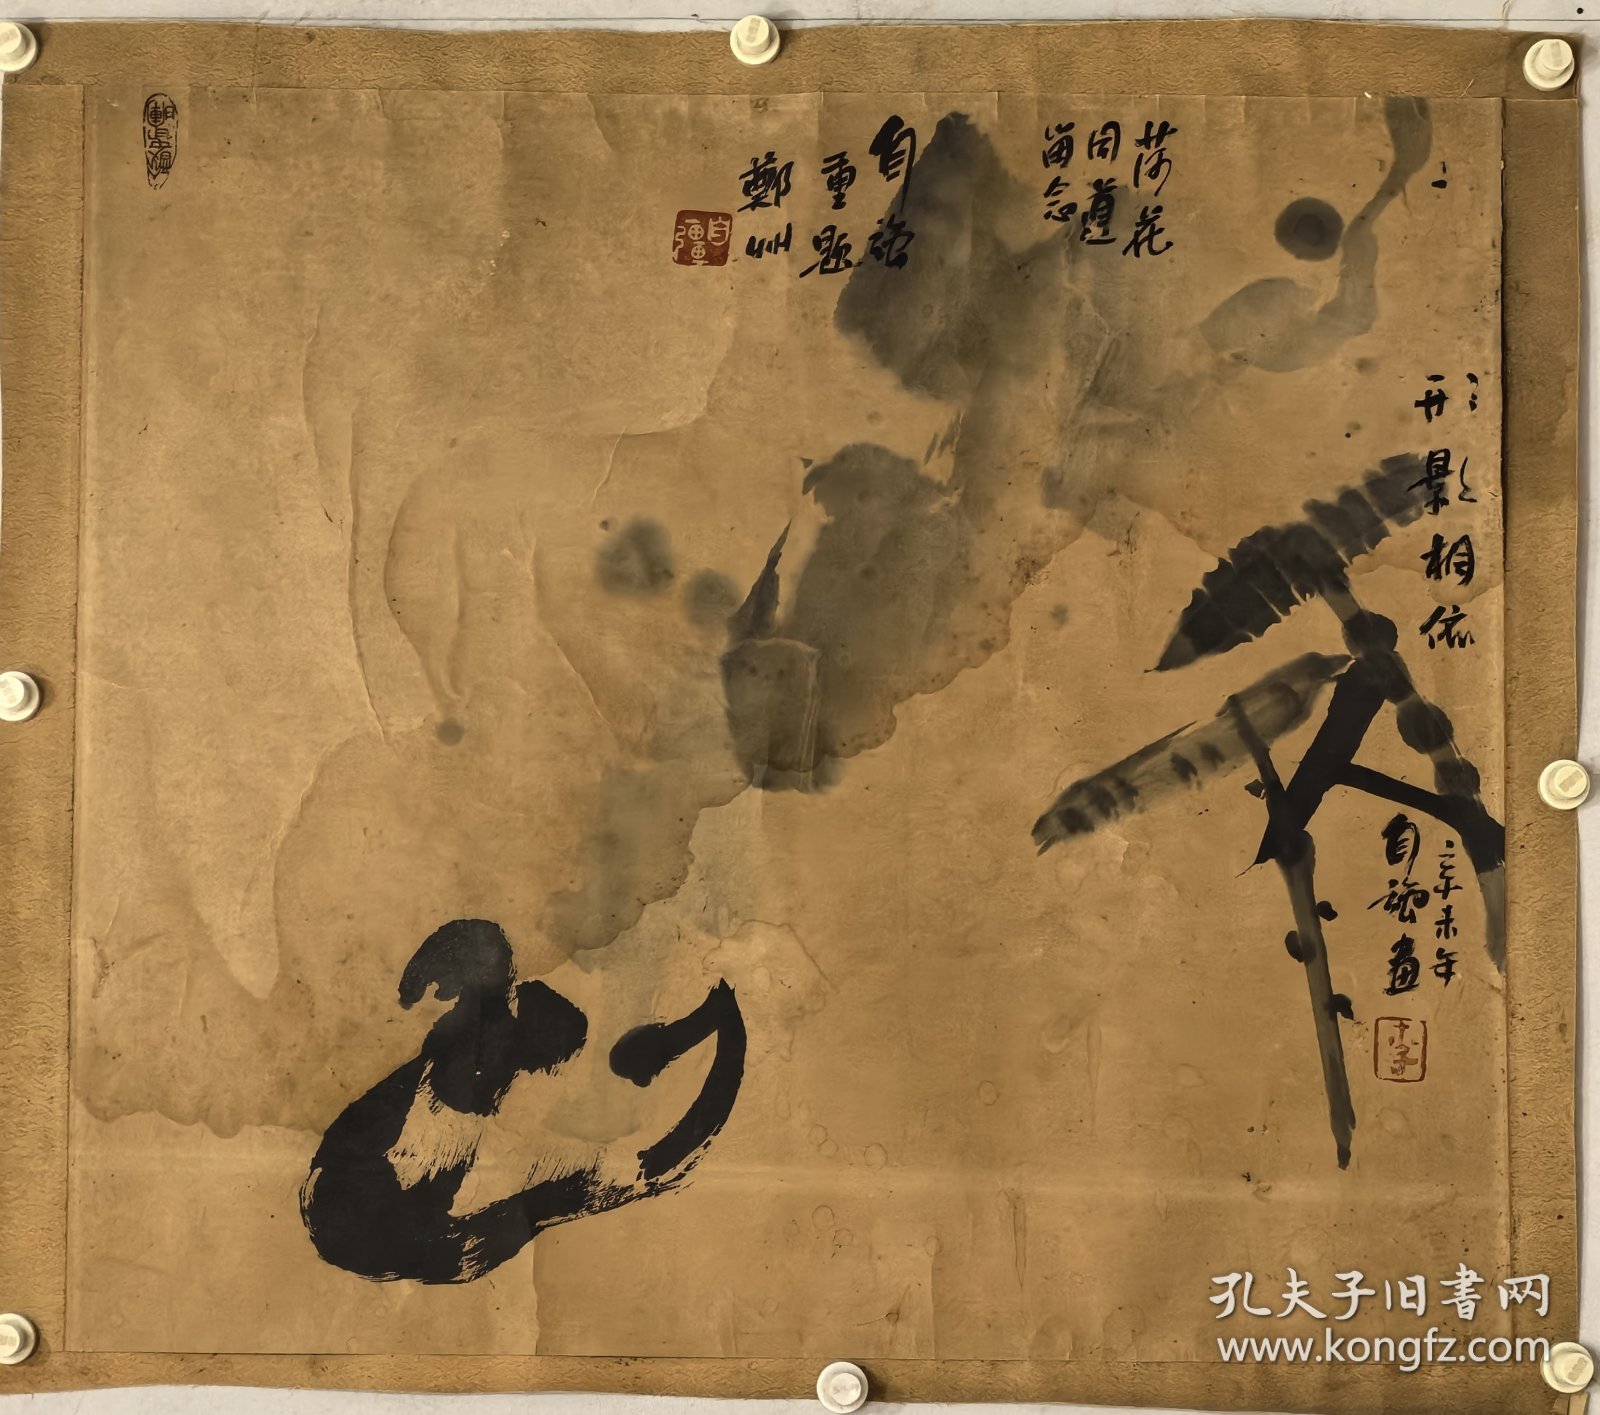 形影相依
辛未年
自强畫
莎花
同道
留念
自强
重題
鄭州
自彊
李
孔夫子旧書网
www.kongfz.com